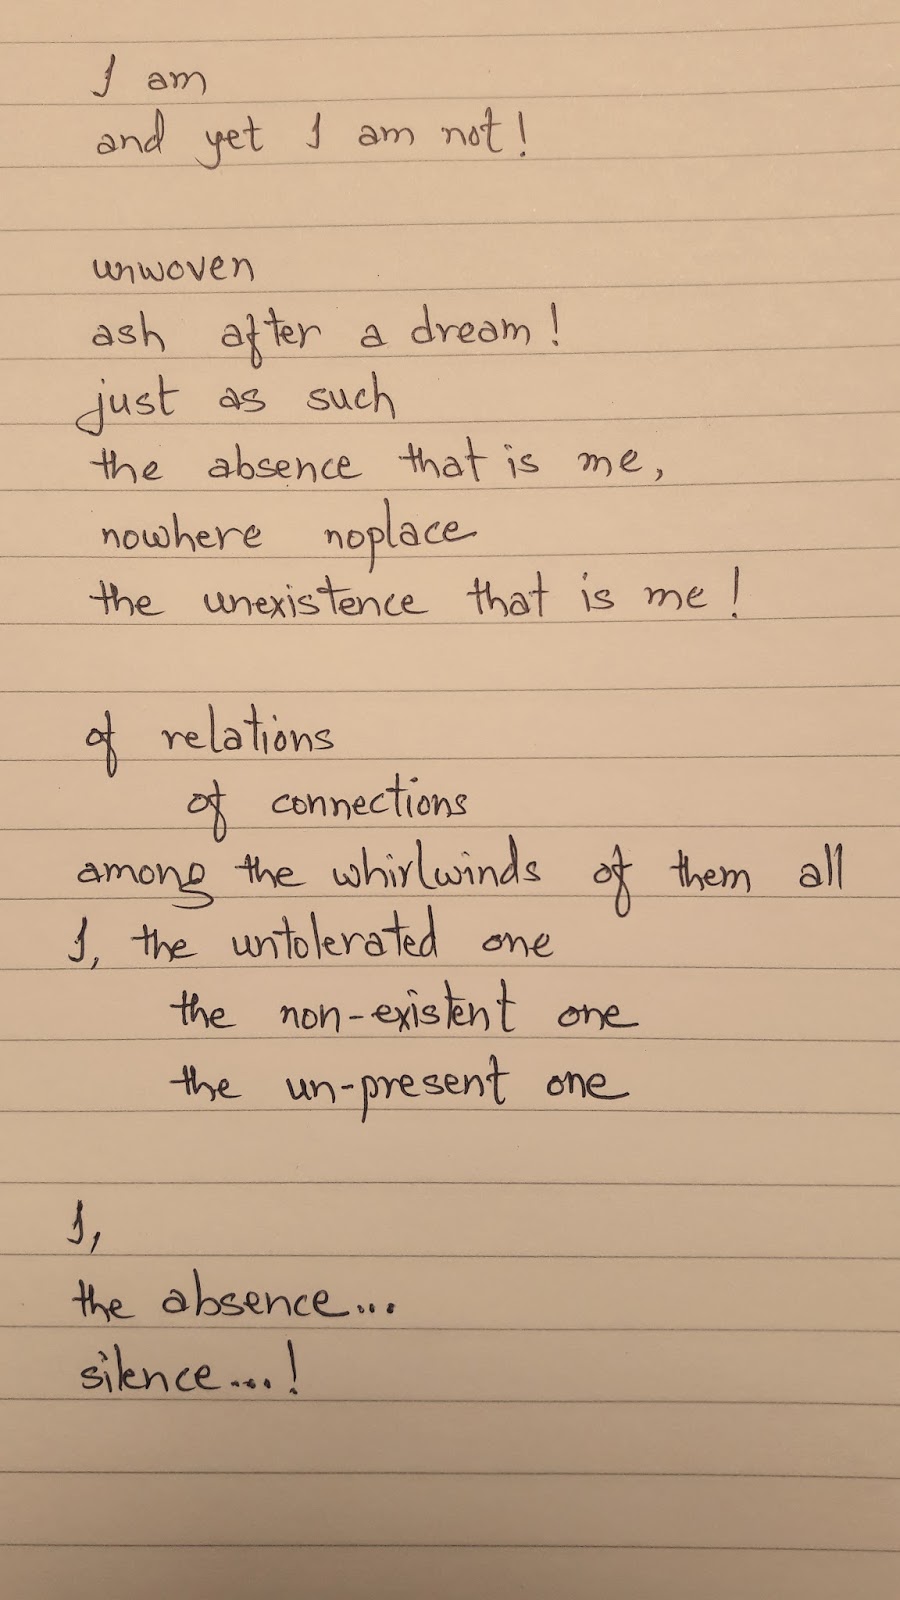 I am
and yet I am not!
unwoven
ash after a dream!
just as such
the absence that is me,
nowhere noplace
the unexistence that is me!
of relations
of connections
among the whirlwinds of them all
I, the untolerated one
the non-existent one
the un-present one
I,
the absence...
silence....!